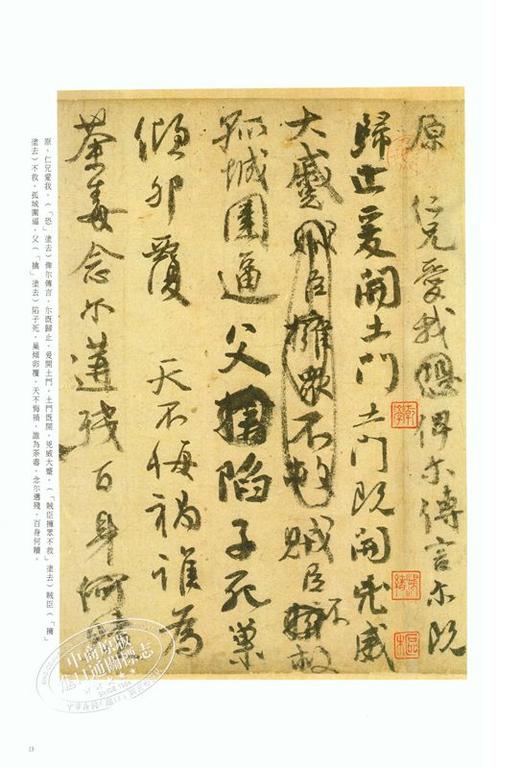 原仁兄愛我恐俾尔傳言尔既
歸止爰開土門土門既開兇威
大蹙賊臣擁眾不救賊臣擁不救
孤城圍逼父擒陷子死巢
傾卵覆天不悔禍誰為
荼毒念尔遘殘百身何贖
原。仁兄愛我。(「恐」塗去)俾尔傳言。尔既歸止。爰開土門。土門既開。兇威大蹙。(「賊臣擁眾不救」塗去)賊臣(「擁」
塗去)不救。孤城圍逼。父(「擒」塗去)陷子死。巢傾卵覆。天不悔禍。誰為荼毒。念尔遘殘。百身何贖。
中商原版
進口通關標志